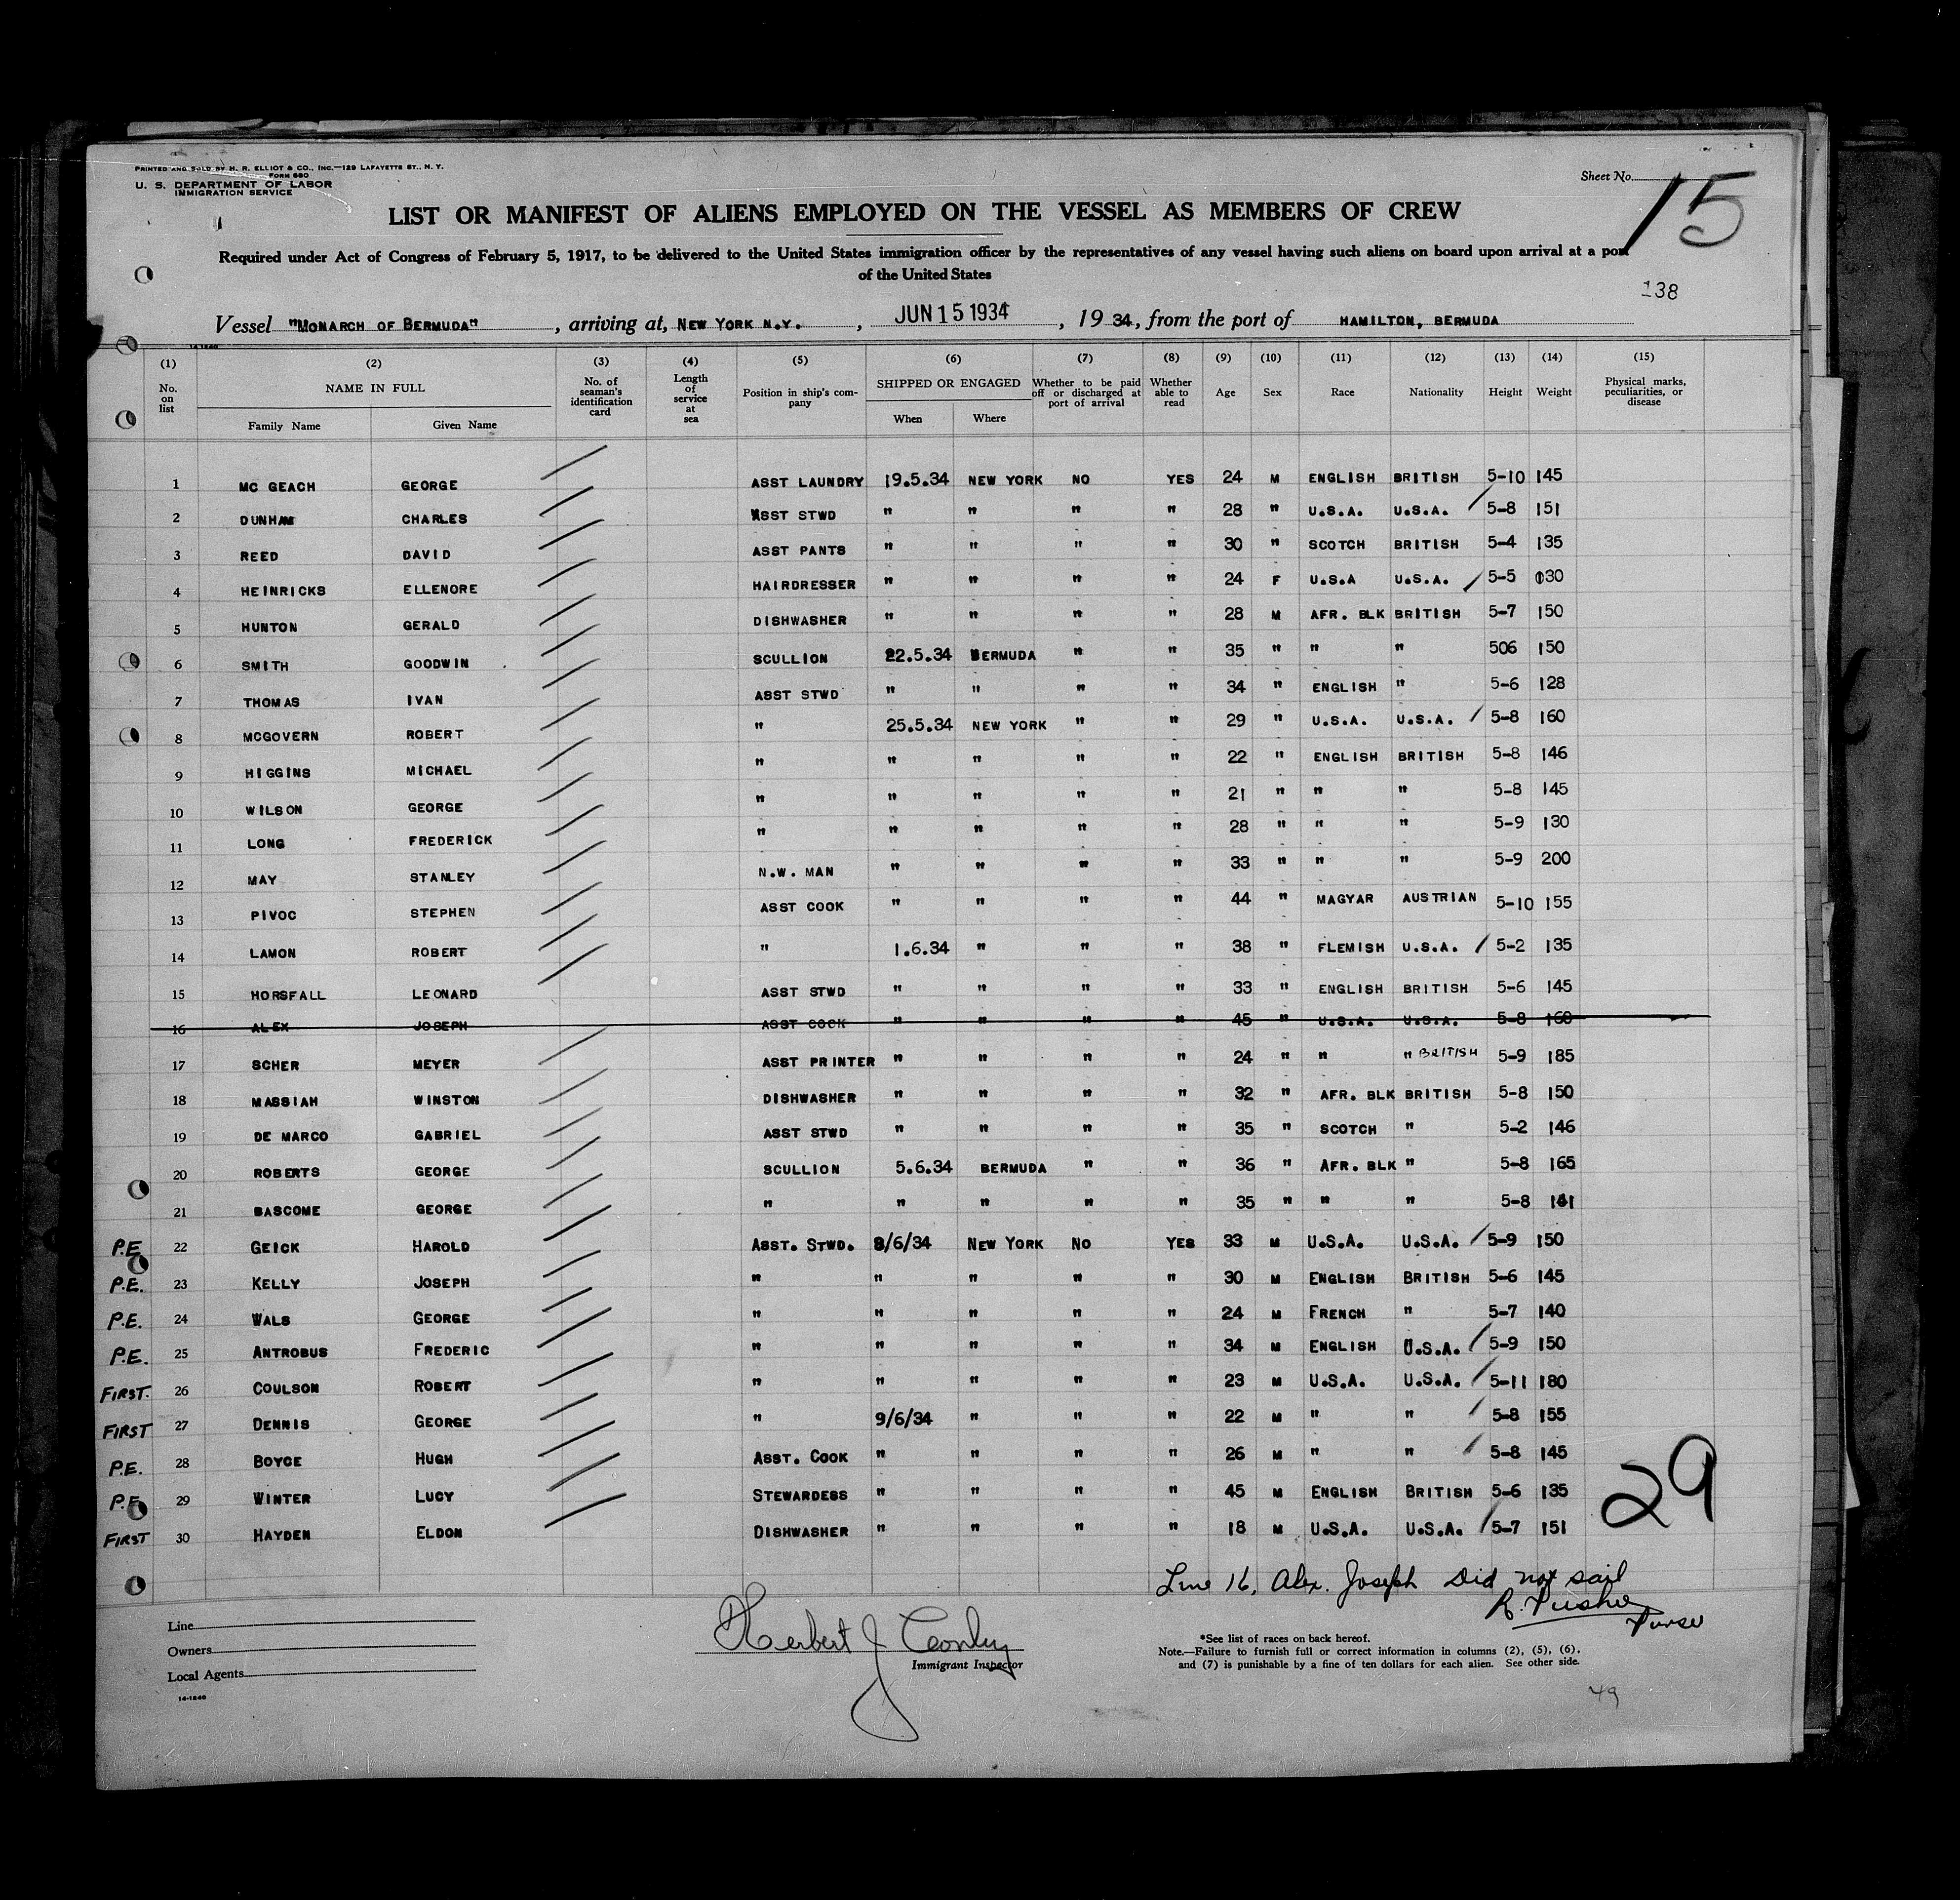 PRINTED AND SOLD BY H. R. ELLIOT & CO., INC.—129 LAFAYETTE ST., N. Y.
FORM 680
U. S. DEPARTMENT OF LABOR
IMMIGRATION SERVICE
Sheet No. 15
LIST OR MANIFEST OF ALIENS EMPLOYED ON THE VESSEL AS MEMBERS OF CREW
Required under Act of Congress of February 5, 1917, to be delivered to the United States immigration officer by the representatives of any vessel having such aliens on board upon arrival at a port
of the United States
138
Vessel "MONARCH OF BERMUDA", arriving at, NEW YORK N.Y., JUN 15 1934, 19 34, from the port of HAMILTON, BERMUDA
14-1240
(1) (2) (3) (4) (5) (6) (7) (8) (9) (10) (11) (12) (13) (14) (15)
No. on list NAME IN FULL Family Name Given Name No. of seaman's identification card Length of service at sea Position in ship's company SHIPPED OR ENGAGED When Where Whether to be paid off or discharged at port of arrival Whether able to read Age Sex Race Nationality Height Weight Physical marks, peculiarities, or disease
1 MC GEACH GEORGE ASST LAUNDRY 19.5.34 NEW YORK NO YES 24 M ENGLISH BRITISH 5-10 145
2 DUNHAM CHARLES ASST STWD " " " " 28 " U.S.A. U.S.A. 5-8 151
3 REED DAVID ASST PANTS " " " " 30 " SCOTCH BRITISH 5-4 135
4 HEINRICKS ELLENORE HAIRDRESSER " " " " 24 F U.S.A U.S.A. 5-5 130
5 HUNTON GERALD DISHWASHER " " " " 28 M AFR. BLK BRITISH 5-7 150
6 SMITH GOODWIN SCULLION 22.5.34 BERMUDA " " 35 " " " 506 150
7 THOMAS IVAN ASST STWD " " " " 34 " ENGLISH " 5-6 128
8 MCGOVERN ROBERT " 25.5.34 NEW YORK " " 29 " U.S.A. U.S.A. 5-8 160
9 HIGGINS MICHAEL " " " " " 22 " ENGLISH BRITISH 5-8 146
10 WILSON GEORGE " " " " " 21 " " " 5-8 145
11 LONG FREDERICK " " " " " 28 " " " 5-9 130
12 MAY STANLEY N.W. MAN " " " " 33 " " " 5-9 200
13 PIVOC STEPHEN ASST COOK " " " " 44 " MAGYAR AUSTRIAN 5-10 155
14 LAMON ROBERT " 1.6.34 " " " 38 " FLEMISH U.S.A. 5-2 135
15 HORSFALL LEONARD ASST STWD " " " " 33 " ENGLISH BRITISH 5-6 145
16 ALEX JOSEPH ASST COOK " " " " 45 " U.S.A. U.S.A. 5-8 160
17 SCHER MEYER ASST PRINTER " " " " 24 " " " BRITISH 5-9 185
18 MASSIAH WINSTON DISHWASHER " " " " 32 " AFR. BLK BRITISH 5-8 150
19 DE MARCO GABRIEL ASST STWD " " " " 35 " SCOTCH " 5-2 146
20 ROBERTS GEORGE SCULLION 5.6.34 BERMUDA " " 36 " AFR. BLK " 5-8 165
21 BASCOME GEORGE " " " " " 35 " " " 5-8 141
P.E. 22 GEICK HAROLD ASST. STWD. 8/6/34 NEW YORK NO YES 33 M U.S.A. U.S.A. 5-9 150
P.E. 23 KELLY JOSEPH " " " " " 30 M ENGLISH BRITISH 5-6 145
P.E. 24 WALS GEORGE " " " " " 24 M FRENCH " 5-7 140
P.E. 25 ANTROBUS FREDERIC " " " " " 34 M ENGLISH U.S.A. 5-9 150
FIRST. 26 COULSON ROBERT " " " " " 23 M U.S.A. U.S.A. 5-11 180
FIRST 27 DENNIS GEORGE " 9/6/34 " " " 22 M " " 5-8 155
P.E. 28 BOYCE HUGH ASST. COOK " " " " 26 M " " 5-8 145
P.E. 29 WINTER LUCY STEWARDESS " " " " 45 M ENGLISH BRITISH 5-6 135
FIRST 30 HAYDEN ELDON DISHWASHER " " " " 18 M U.S.A. U.S.A. 5-7 151
29
Line 16, Alex. Joseph Did not sail
Purser
Line
Owners
Local Agents
14-1240
Herbert J
Immigrant Inspector
*See list of races on back hereof.
Note.—Failure to furnish full or correct information in columns (2), (5), (6),
and (7) is punishable by a fine of ten dollars for each alien. See other side.
49